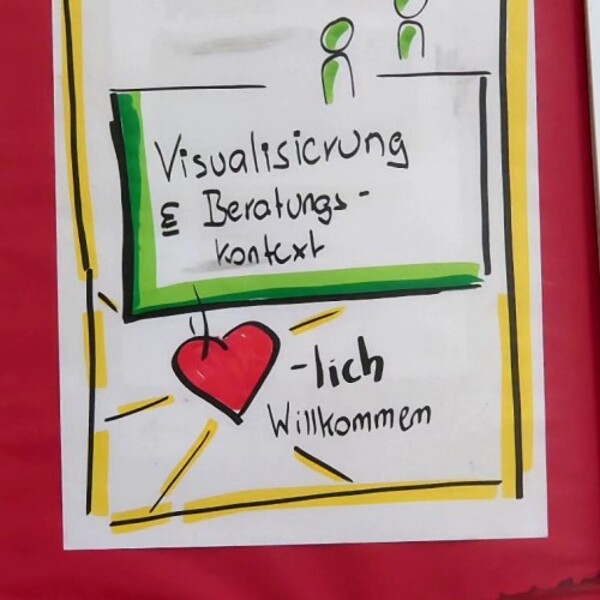 Visualisierung
& Beratungs-
kontext
-lich
Willkommen